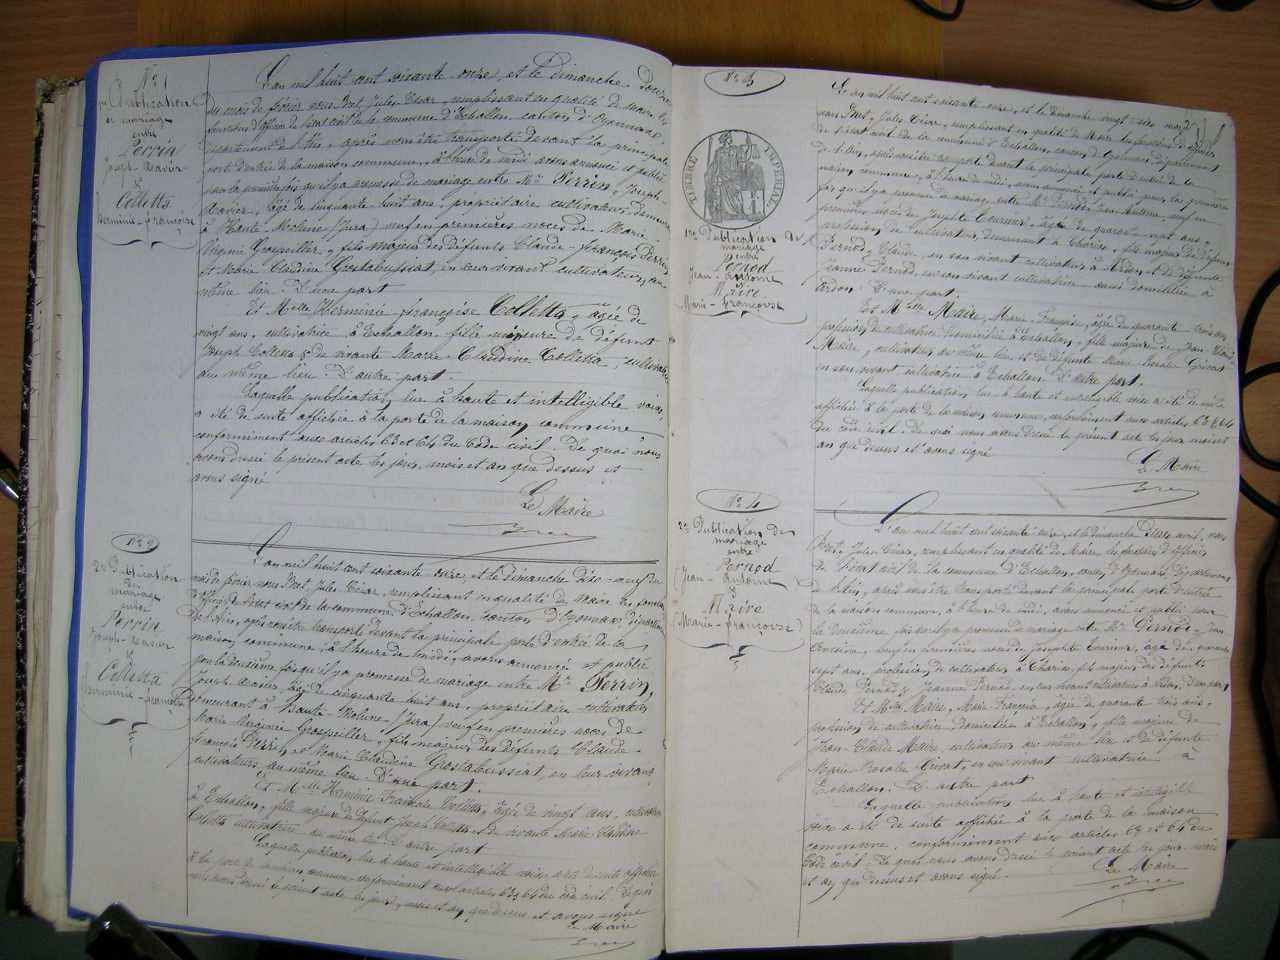 N° 1
1re Publication
de mariage
entre
Perrin
Joseph-Xavier
&
Colletta
Herminie-françoise
L'an mil huit cent soixante-onze, et le dimanche douze
du mois de février nous Bret, Jules César, remplissant en qualité de Maire les
fonctions d'officier de l'état civil de la commune d'Echallon, canton d'Oyonnax,
département de l'Ain, après nous être transporté devant la principale
porte d'entrée de la maison commune, à l'heure de midi, avons annoncé et publié
pour la première fois qu'il y a promesse de mariage entre Mr Perrin, Joseph-
Xavier, âgé de cinquante-huit ans, propriétaire cultivateur, demeurant
à Haute Molune (Jura) veuf en premières noces de Marie
Virginie Grospellier, fils majeur des défunts Claude-françois Perrin
et Marie Claudine Grostabussiat, en leur vivant cultivateurs, au
même lieu. D'une part
Et Melle Herminie françoise Colletta, âgée de
vingt ans, cultivatrice à Echallon, fille mineure de défunt
Joseph Colletta & de vivante Marie-Claudine Colletta, cultivatrice
au même lieu. D'autre part.
Laquelle publication, lue à haute et intelligible voix,
a été de suite affichée à la porte de la maison commune
conformément aux articles 63 et 64 du Code civil. De quoi nous
avons dressé le présent acte les jour, mois et an que dessus et
avons signé
Le Maire
Bret
N° 2
2e Publication
de
mariage
entre
Perrin
Joseph-Xavier
&
Colletta
Herminie-françoise
L'an mil huit cent soixante-onze et le dimanche dix-neuf du
mois de février nous Bret, Jules César, remplissant en qualité de Maire les fonctions
d'officier de l'état civil de la commune d'Echallon, canton d'Oyonnax, département
de l'Ain, après nous être transporté devant la principale porte d'entrée de la
maison commune, à l'heure de midi, avons annoncé et publié
pour la deuxième fois qu'il y a promesse de mariage entre Mr Perrin,
Joseph Xavier, âgé de cinquante huit ans, propriétaire cultivateur
demeurant à Haute-Molune (Jura) veuf en premières noces de
Marie Virginie Grospellier, fils majeur des défunts Claude-
françois Perrin et Marie Claudine Grostabussiat, en leur vivant
cultivateurs au même lieu. D'une part.
Et Melle Herminie Françoise Colletta, âgée de vingt ans, cultivatrice
à Echallon, fille mineure de défunt Joseph Colletta & de vivante Marie Claudine
Colletta cultivatrice au même lieu. D'autre part
Laquelle publication, lue à haute et intelligible voix a été de suite affichée
à la porte de la maison commune conformément aux articles 63 & 64 du code civil. De quoi
nous avons dressé le présent acte les jour, mois et an que dessus et avons signé
Le Maire
Bret
N° 3
TIMBRE IMPERIAL
1re Publication de
mariage
entre
Pernod
Jean-Antoine
&
Maire
Marie-Françoise
L'an mil huit cent soixante onze, et le dimanche vingt-six mars
nous Bret, Jules César, remplissant en qualité de Maire les fonctions d'officier
de l'état civil de la commune d'Echallon, canton d'Oyonnax, département
de l'Ain, après nous être transporté devant la principale porte d'entrée de la
maison commune, à l'heure de midi, avons annoncé et publié pour la première
fois qu'il y a promesse de mariage entre Mr Pernod Jean Antoine, veuf en
premières noces de Josephte Tournier, âgé de quarante sept ans,
profession de cultivateur, demeurant à Charix, fils majeur de défunt
Pernod, Claude, en son vivant cultivateur à Ardon et de défunte
Jeanne Pernod en son vivant cultivatrice aussi domiciliée à
Ardon. D'une part.
Et Melle Maire, Marie-Françoise, âgée de quarante trois ans,
profession de cultivatrice, domiciliée à Echallon, fille majeure de Jean-Claude
Maire, cultivateur au même lieu et de défunte Marie Rosalie Grivat
en son vivant cultivatrice à Echallon. D'autre part.
Laquelle publication, lue à haute et intelligible voix a été de suite
affichée à la porte de la maison commune, conformément aux articles 63 & 64
du code civil. De quoi nous avons dressé le présent acte les jour mois et
an que dessus et avons signé
Le Maire
Bret
N° 4
2e Publication de
mariage
entre
Pernod
Jean-Antoine
&
Maire
(Marie-Françoise)
L'an mil huit cent soixante onze, et le dimanche deux avril, nous
Bret, Jules César, remplissant en qualité de Maire les fonctions d'officier
de l'état civil de la commune d'Echallon, canton d'Oyonnax, département
de l'Ain, après nous être transporté devant la principale porte d'entrée
de la maison commune, à l'heure de midi, avons annoncé et publié pour
la deuxième fois qu'il y a promesse de mariage entre Mr Pernod, Jean
Antoine, veuf en premières noces de Josephte Tournier, âgé de quarante
sept ans, profession de cultivateur à Charix, fils majeur de défunts
Claude Pernod & Jeanne Pernod, en leur vivant cultivateurs à Ardon. D'une part,
Et Melle Maire, Marie-Françoise, âgée de quarante trois ans,
profession de cultivatrice, domiciliée à Echallon, fille majeure de
Jean-Claude Maire, cultivateur au même lieu et de défunte
Marie Rosalie Grivat, en son vivant cultivatrice à
Echallon. D'autre part
Laquelle publication, lue à haute et intelligible
voix a été de suite affichée à la porte de la maison
commune, conformément aux articles 63 et 64 du
Code civil. De quoi nous avons dressé le présent acte les jour, mois
et an que dessus et avons signé.
Le Maire
Bret